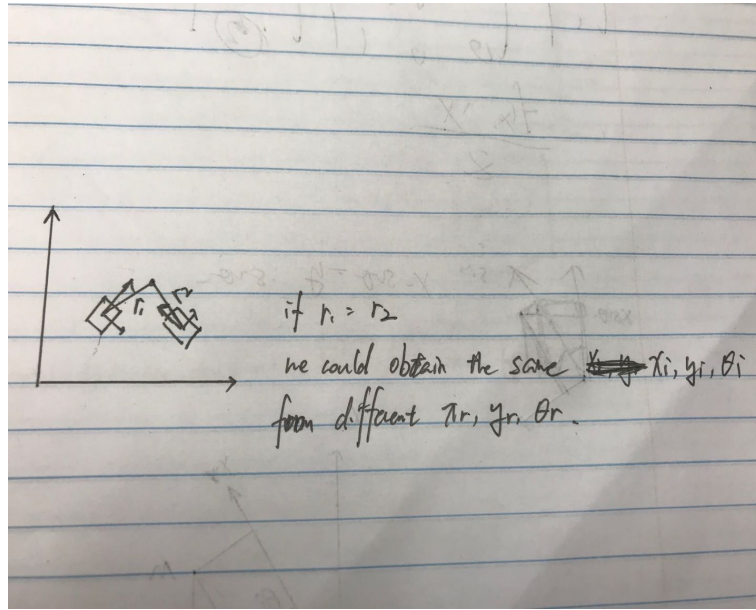 r₁
r₂
if r₁ = r₂
we could obtain the same xi, yi, θi
from different xr, yr, θr.